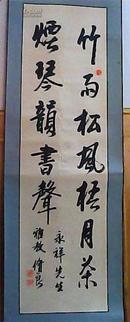 竹雨松風梧月茶
煙琴韻書聲
永祥先生
雅教